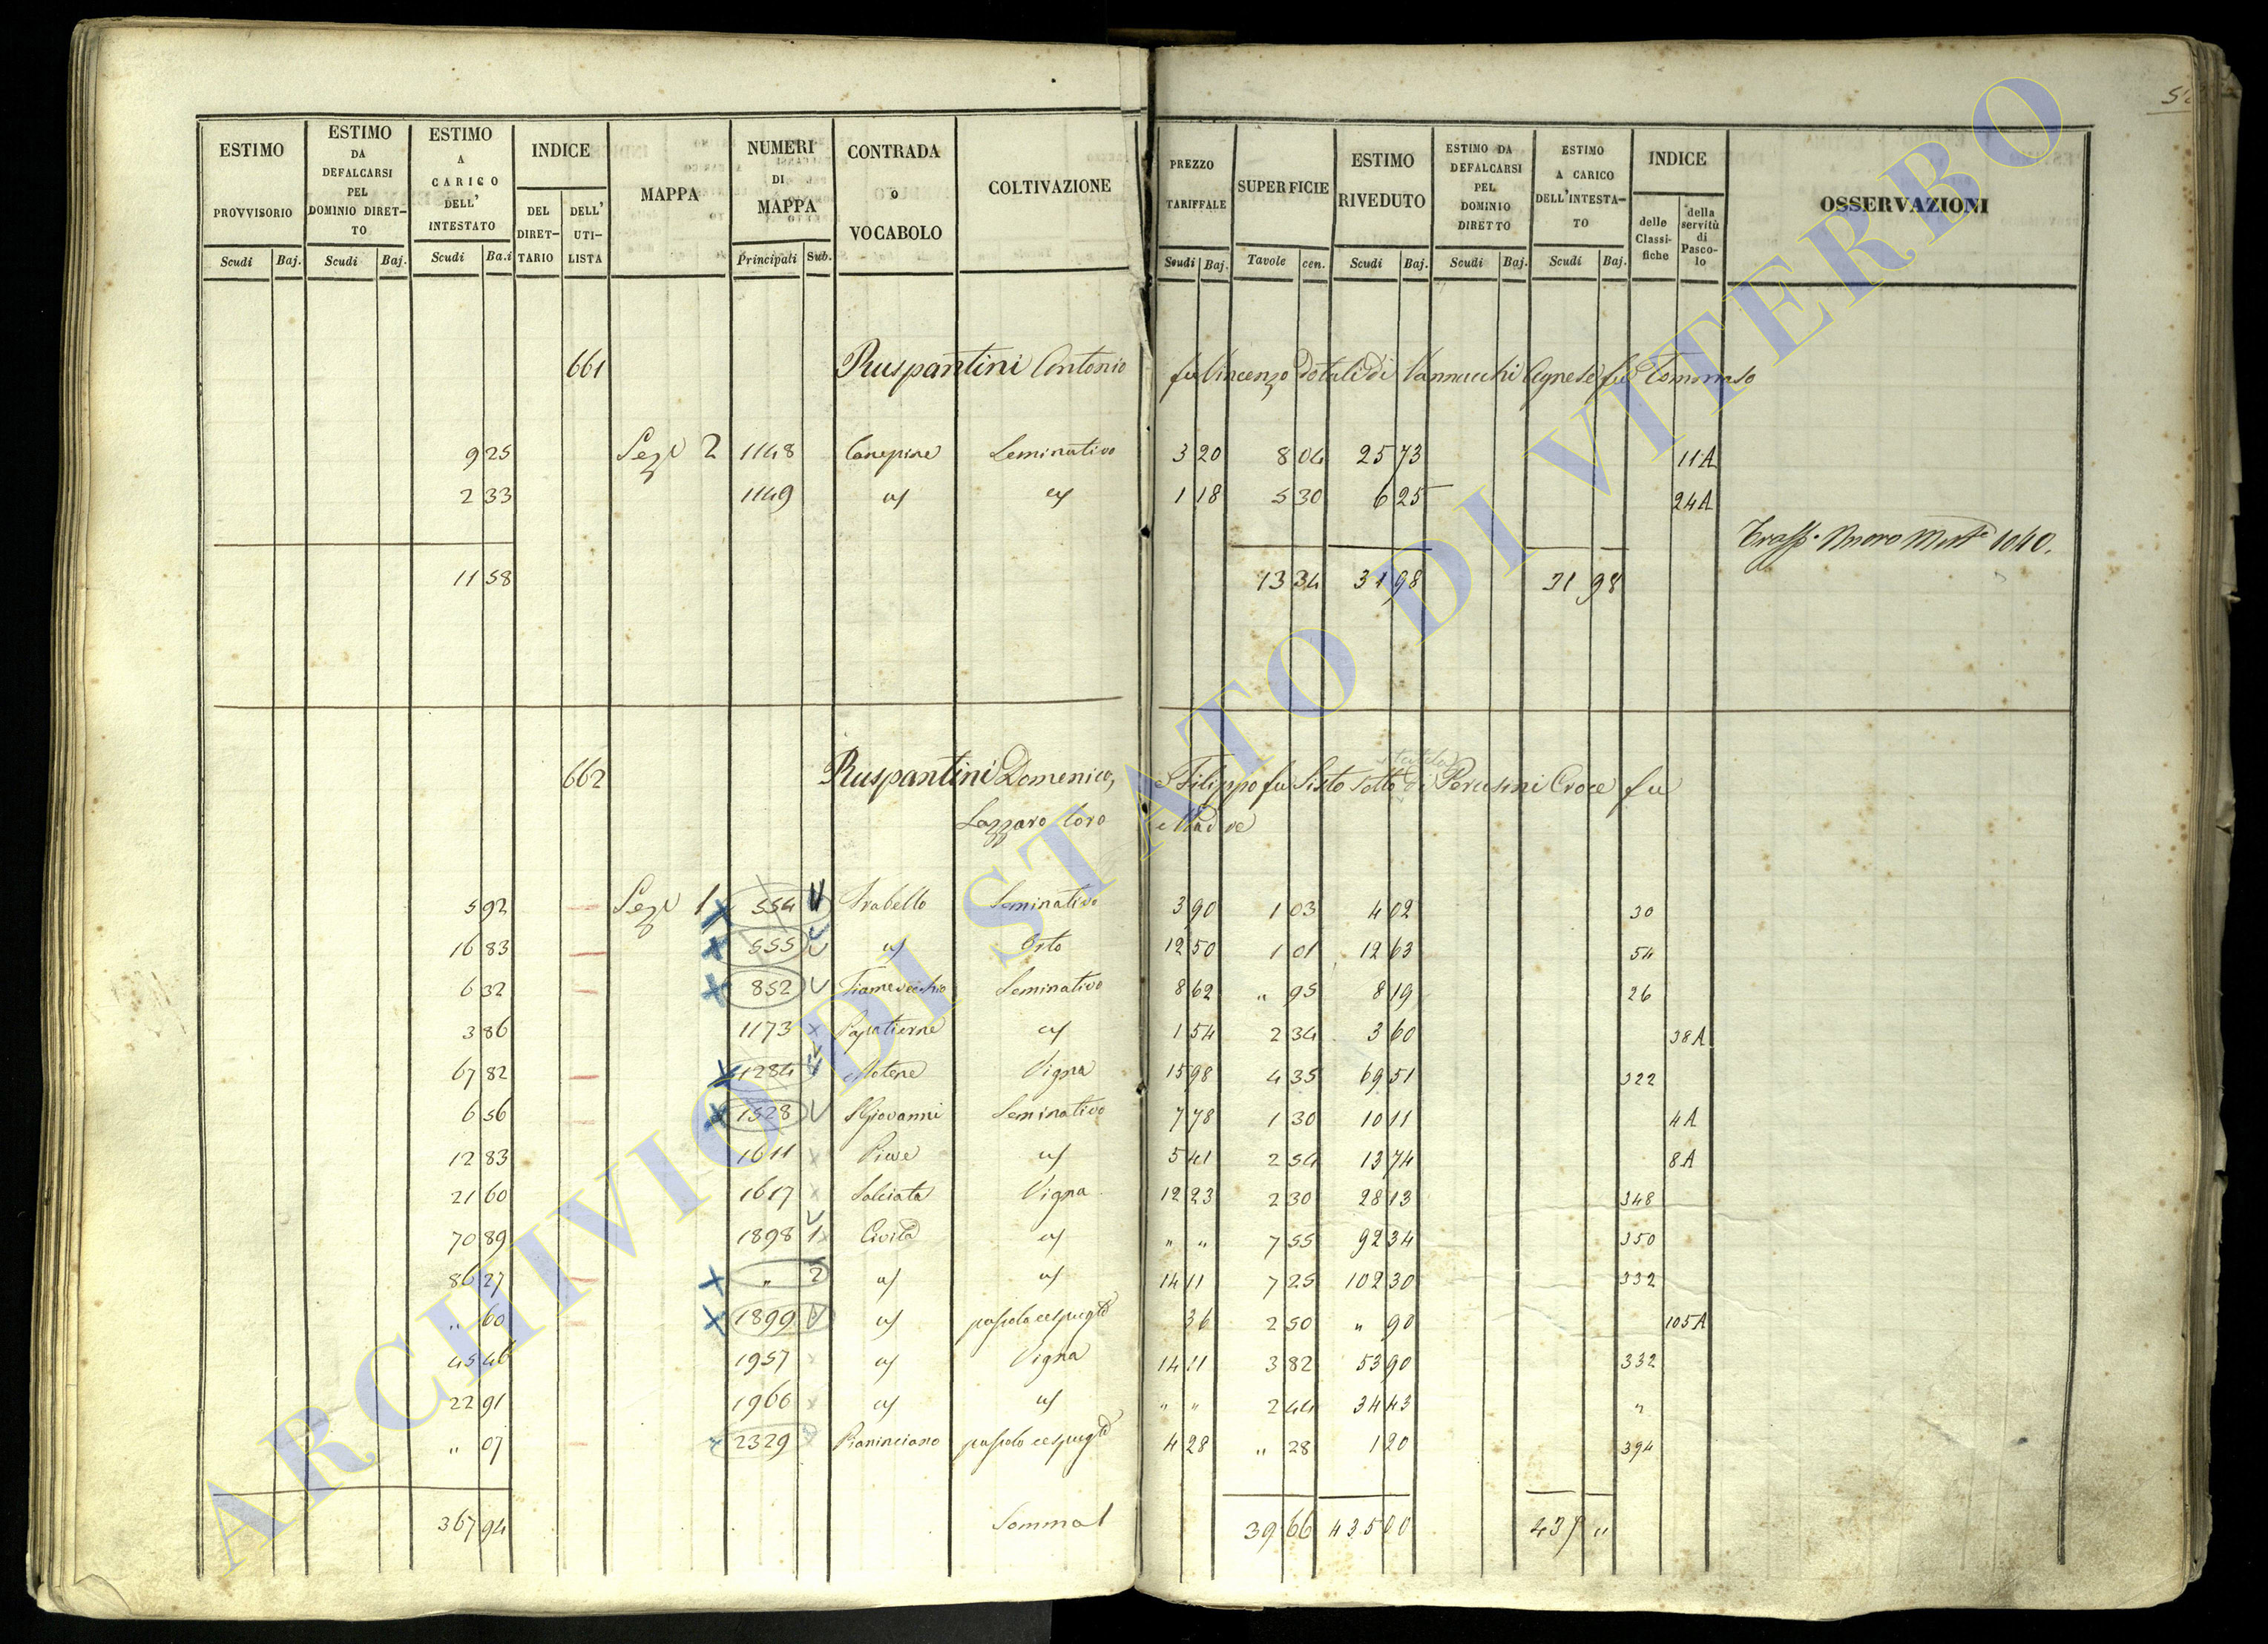 ESTIMO PROVVISORIO Scudi Baj. ESTIMO DA DEFALCARSI PEL DOMINIO DIRETTO Scudi Baj. ESTIMO A CARICO DELL' INTESTATO Scudi Ba.i INDICE DEL DIRETTARIO DELL' UTILISTA MAPPA NUMERI DI MAPPA Principali Sub. CONTRADA O VOCABOLO COLTIVAZIONE PREZZO TARIFFALE Scudi Baj. SUPERFICIE Tavole cen. ESTIMO RIVEDUTO Scudi Baj. ESTIMO DA DEFALCARSI PEL DOMINIO DIRETTO Scudi Baj. ESTIMO A CARICO DELL'INTESTATO Scudi Baj. INDICE delle Classifiche della servitù di Pascolo OSSERVAZIONI
661 Ruspantini Antonio fu Vincenzo dotali di Vannucchi Agnese fu Tommaso
9 25 Sez. 2 1148 Canepine Seminativo 3 20 8 04 25 73 11A
2 33 1149 " " 1 18 5 30 6 25 24A
Trasp. Nuovo Mert. 1040.
11 58 13 34 31 98 31 98
662 Ruspantini Domenico, e Filippo fu Sisto sotto tutela di Perusini Croce fu
Lazzaro loro Madre
5 92 Sez. 1 554 Trabello Seminativo 3 90 1 03 4 02 30
16 83 555 " Orto 12 50 1 01 12 63 54
6 32 852 Fiamevecchio Seminativo 8 62 " 95 8 19 26
3 86 1173 x Papatierne " 1 54 2 34 3 60 38A
67 82 1284 Motene Vigna 15 98 4 35 69 51 322
6 56 1528 S Giovanni Seminativo 7 78 1 30 10 11 4A
12 83 1611 x Pieve " 5 41 2 54 13 74 8A
21 60 1617 x Salciata Vigna 12 23 2 30 28 13 348
70 89 1898 1 Civita " " " 7 55 92 34 350
86 27 " 2 " " 14 11 7 25 102 30 332
" 60 1899 " pascolo cespugto 36 2 50 " 90 105A
45 46 1957 x " Vigna 14 11 3 82 53 90 332
22 91 1966 x " " " " 2 44 34 43 "
" 07 2329 Pianinciano pascolo cespugto 4 28 " 28 1 20 394
367 94 Somma 39 66 435 00 435 "
ARCHIVIO DI STATO DI VITERBO